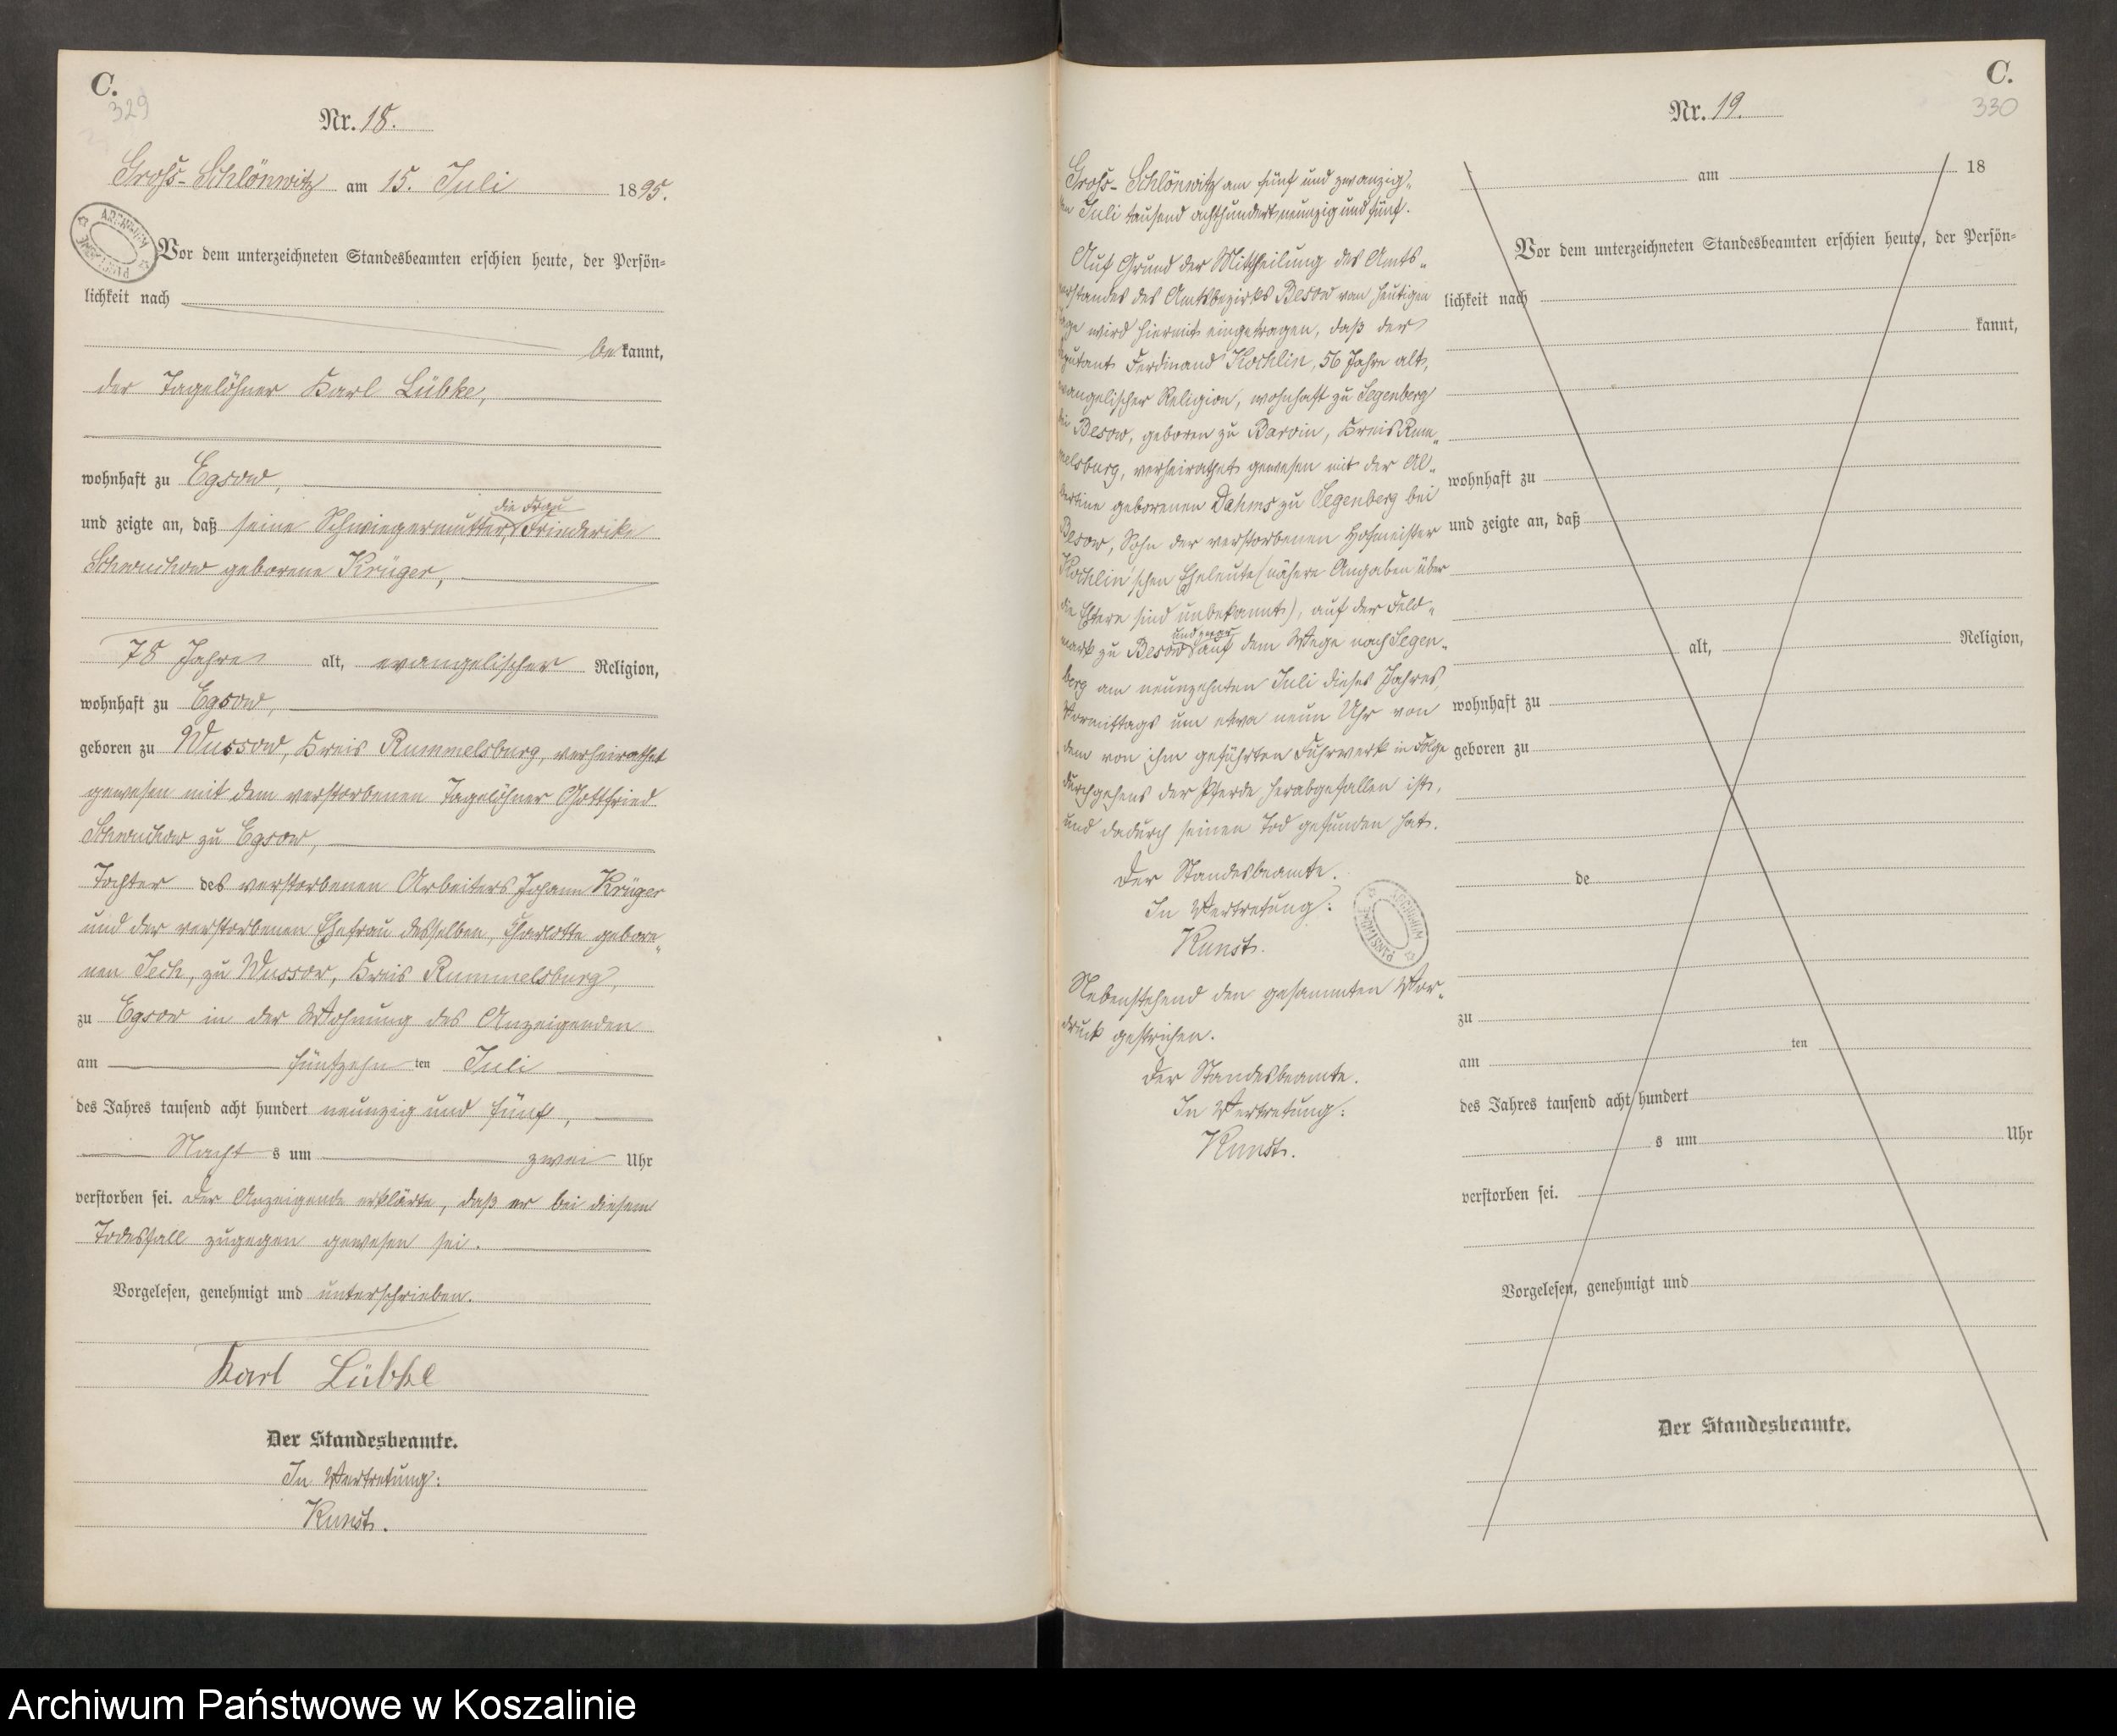 C.
329
Nr. 18.
Gross-Schlönwitz am 15. Juli 1895.
ARCHIWUM PAŃSTWOWE
Vor dem unterzeichneten Standesbeamten erschien heute, der Persön-
lichkeit nach
be kannt,
der Tagelöhner Karl Lübke,
wohnhaft zu Egsow,
die Frau
und zeigte an, daß seine Schwiegermutter, Friederike
Schwuchow geborene Krüger,
78 Jahre alt, evangelischer Religion,
wohnhaft zu Egsow,
geboren zu Wussow, Kreis Rummelsburg, verheirathet
gewesen mit dem verstorbenen Tagelöhner Gottfried
Schwuchow zu Egsow,
Tochter des verstorbenen Arbeiters Johann Krüger
und der verstorbenen Ehefrau desselben, Charlotte gebore-
nen Tech, zu Wussow, Kreis Rummelsburg,
zu Egsow in der Wohnung des Anzeigenden
am fünfzehn ten Juli
des Jahres tausend acht hundert neunzig und fünf,
Nacht s um zwei Uhr
verstorben sei. Der Anzeigende erklärte, daß er bei diesem
Todesfall zugegen gewesen sei.
Vorgelesen, genehmigt und unterschrieben.
Karl Lübke
Der Standesbeamte.
In Vertretung:
Kunst.
C.
330
Nr. 19.
Gross-Schlönwitz am fünf und zwanzig-
ten Juli tausend achthundert neunzig und fünf.
Auf Grund der Mittheilung des Amts-
vorstandes des Amtsbezirks Besow vom heutigen
Tage wird hiermit eingetragen, daß der
Deputant Ferdinand Kochlin, 56 Jahre alt,
evangelischer Religion, wohnhaft zu Segenberg
bei Besow, geboren zu Barvin, Kreis Rum-
melsburg, verheirathet gewesen mit der Al-
bertine geborenen Dahms zu Segenberg bei
Besow, Sohn der verstorbenen Hofmeister
Kochlin'schen Eheleute (nähere Angaben über
die Eltern sind unbekannt), auf der Feld-
und zwar
mark zu Besow auf dem Wege nach Segen-
berg am neunzehnten Juli dieses Jahres,
Vormittags um etwa neun Uhr von
dem von ihm geführten Fuhrwerk in Folge
Durchgehens der Pferde herabgefallen ist,
und dadurch seinen Tod gefunden hat.
Der Standesbeamte.
In Vertretung:
Kunst.
ARCHIWUM PAŃSTWOWE
Nebenstehend den gesammten Vor-
druck gestrichen.
Der Standesbeamte.
In Vertretung:
Kunst.
am 18
Vor dem unterzeichneten Standesbeamten erschien heute, der Persön-
lichkeit nach
kannt,
wohnhaft zu
und zeigte an, daß
alt, Religion,
wohnhaft zu
geboren zu
de
zu
am ten
des Jahres tausend acht hundert
s um Uhr
verstorben sei.
Vorgelesen, genehmigt und
Der Standesbeamte.
Archiwum Państwowe w Koszalinie